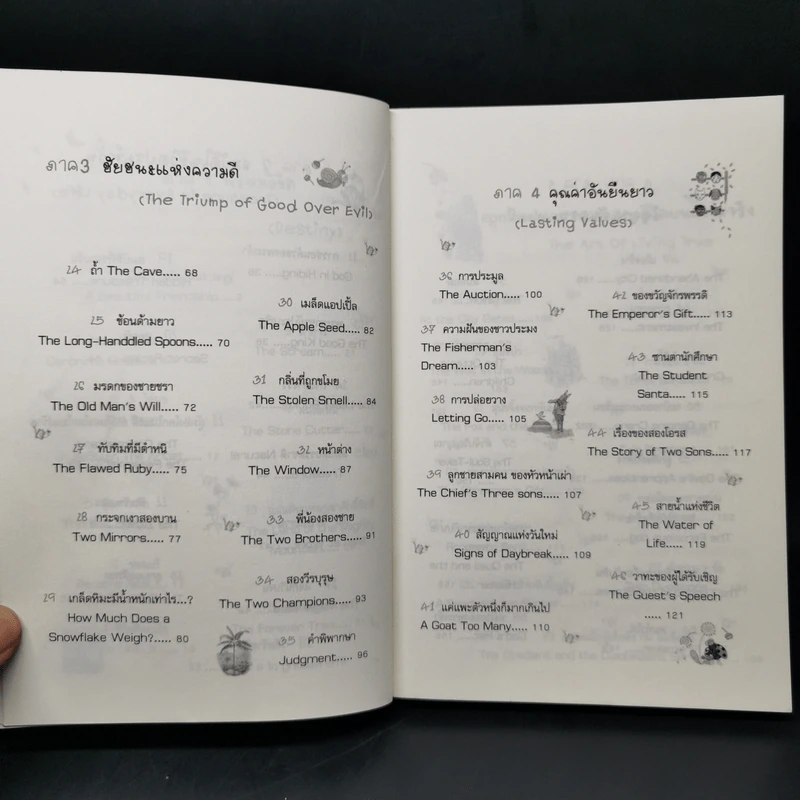 ภาค3 ชัยชนะแห่งความดี
(The Triump of Good Over Evil)
24 ถ้ำ The Cave..... 68
25 ช้อนด้ามยาว
The Long-Handdled Spoons..... 70
26 มรดกของชายชรา
The Old Man's Will..... 72
27 ทับทิมที่มีตำหนิ
The Flawed Ruby..... 75
28 กระจกเงาสองบาน
Two Mirrors..... 77
29 เกล็ดหิมะมีน้ำหนักเท่าไร...?
How Much Does a
Snowflake Weigh?..... 80
30 เมล็ดแอปเปิ้ล
The Apple Seed..... 82
31 กลิ่นที่ถูกขโมย
The Stolen Smell..... 84
32 หน้าต่าง
The Window..... 87
33 พี่น้องสองชาย
The Two Brothers..... 91
34 สองวีรบุรุษ
The Two Champions..... 93
35 คำพิพากษา
Judgment..... 96
ภาค 4 คุณค่าอันยืนยาว
(Lasting Values)
36 การประมูล
The Auction..... 100
37 ความฝันของชาวประมง
The Fisherman's
Dream..... 103
38 การปล่อยวาง
Letting Go..... 105
39 ลูกชายสามคน ของหัวหน้าเผ่า
The Chief's Three sons..... 107
40 สัญญาณแห่งวันใหม่
Signs of Daybreak..... 109
41 แค่แพะตัวหนึ่งก็มากเกินไป
A Goat Too Many..... 110
42 ของขวัญจักรพรรดิ
The Emperor's Gift..... 113
43 ซานตานักศึกษา
The Student
Santa..... 115
44 เรื่องของสองโอรส
The Story of Two Sons..... 117
45 สายน้ำแห่งชีวิต
The Water of
Life..... 119
46 วาทะของผู้ได้รับเชิญ
The Guest's Speech
..... 121